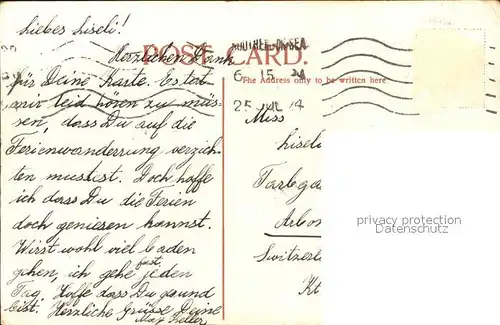 Liebes Liseli!
Herzlichen Dank
POST CARD.
SOUTHEND-ON-SEA
6 15
25 JUL 14
The Address only to be written here
für Deine Karte. Es tat
mir leid hören zu müs-
sen, dass Du auf die
Ferienwanderrung verzich-
ten musstest. Doch hoffe
ich dass Du die Ferien
doch geniesen kannst.
Wirst wohl viel baden
gehen, ich gehe fast jeden
Tag. Hoffe dass Du gesund
bist. Herzliche Grüsse Deine
Max Keller
Miss
Liseli
Arbon
Switzerl
Kt
privacy protection
Datenschutz